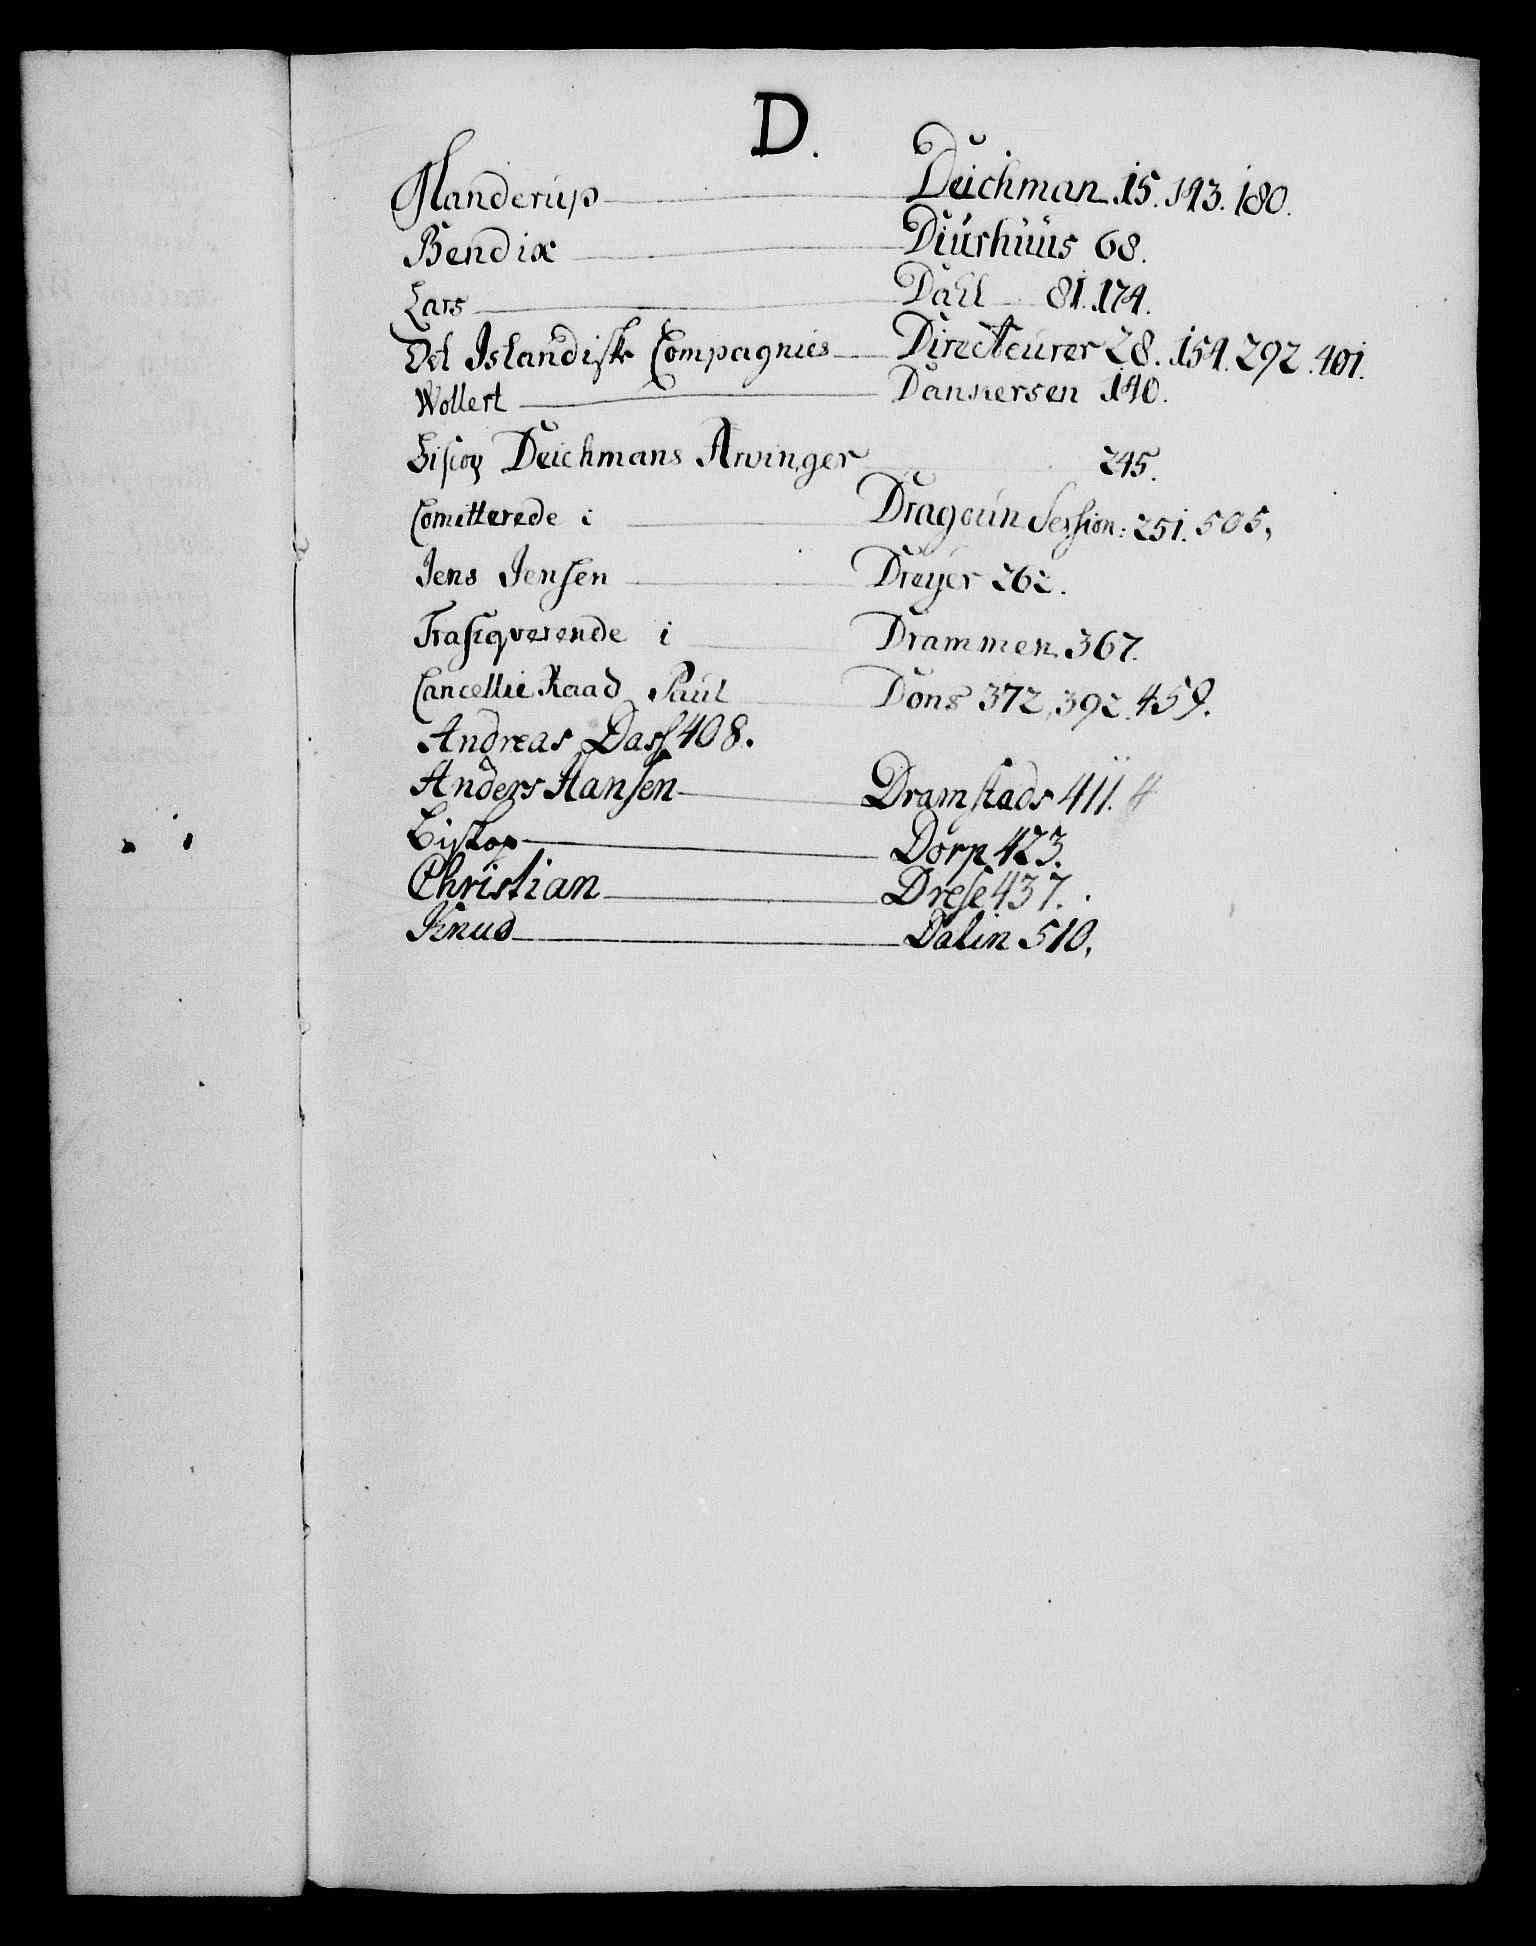 D.
Glanderup Deichman 15. 143. 180.
Bendix Diushuus 68.
Lars Dahl 81. 174.
Det Islandiske Compagnies Directeurer 28. 154. 292. 401.
Wollert Dankersen 140.
Biscop Deichmans Arvinger 245.
Comitterede i Dragoun Session: 251. 505,
Jens Jensen Dreyer 262.
Trafiqverende i Drammen 367.
Cancellie Raad Paul Dons 372, 392. 459.
Andreas Dass 408.
Anders Hansen Dramstads 411.
Biskop Dorp 423.
Christian Drese 437.
Knud Dalin 510,